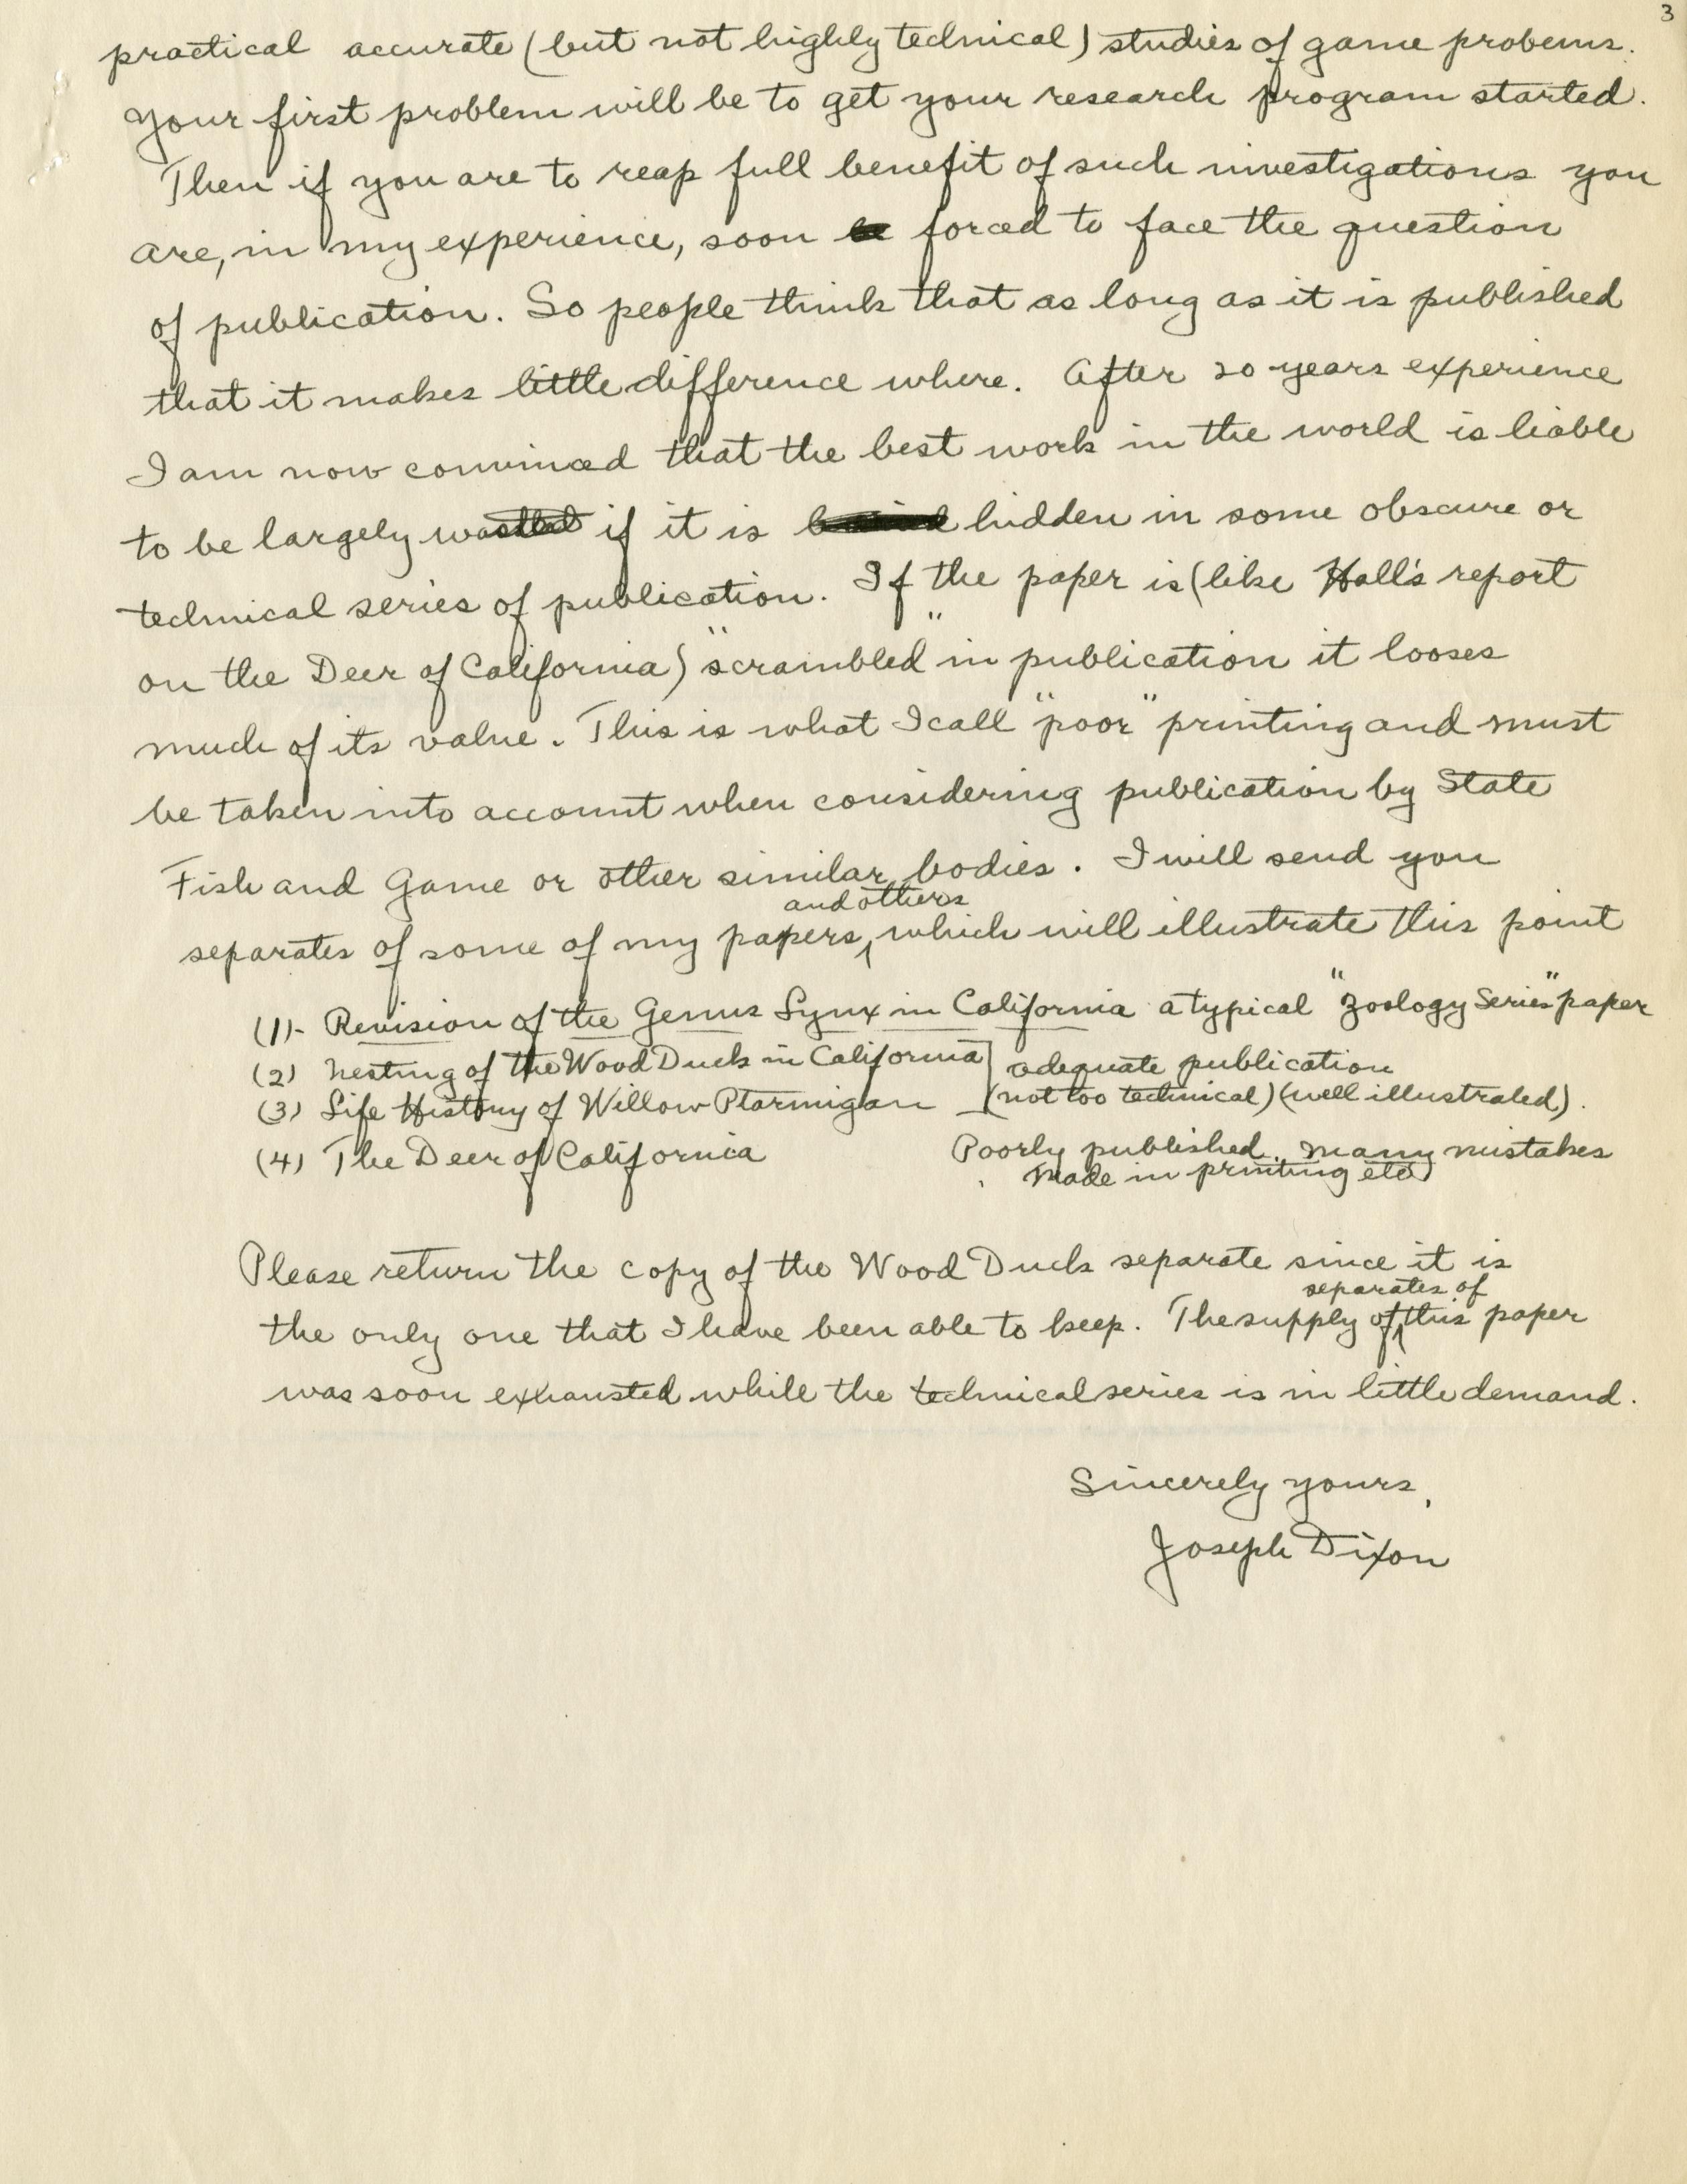 3
practical accurate (but not highly technical) studies of game probems.
Your first problem will be to get your research program started.
Then if you are to reap full benefit of such investigations you
are, in my experience, soon forced to face the question
of publication. So people think that as long as it is published
that it makes little difference where. After 20 years experience
I am now convinced that the best work in the world is liable
to be largely wasted if it is hidden in some obscure or
technical series of publication. If the paper is (like Hall's report
on the Deer of California) "scrambled" in publication it looses
much of its value. This is what I call "poor" printing and must
be taken into account when considering publication by State
Fish and Game or other similar bodies. I will send you
and others
separates of some of my papers, which will illustrate this point
(1)- Revision of the Genus Lynx in California a typical "Zoology Series" paper
(2) Nesting of the Wood Duck in California] adequate publication
(3) Life History of Willow Ptarmigan (not too technical) (well illustrated).
(4) The Deer of California Poorly published. many mistakes
made in printing etc)
Please return the copy of the Wood Duck separate since it is
separates of
the only one that I have been able to keep. The supply of this paper
was soon exhausted while the technical series is in little demand.
Sincerely yours,
Joseph Dixon